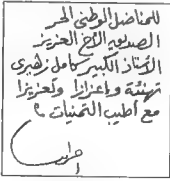 للمناضل الوطنى الحر
الصديق الأخ العزيز
الأستاذ الكبير كامل زهيرى
تهنئة وإعزازا وتعزيزا
مع أطيب التمنيات